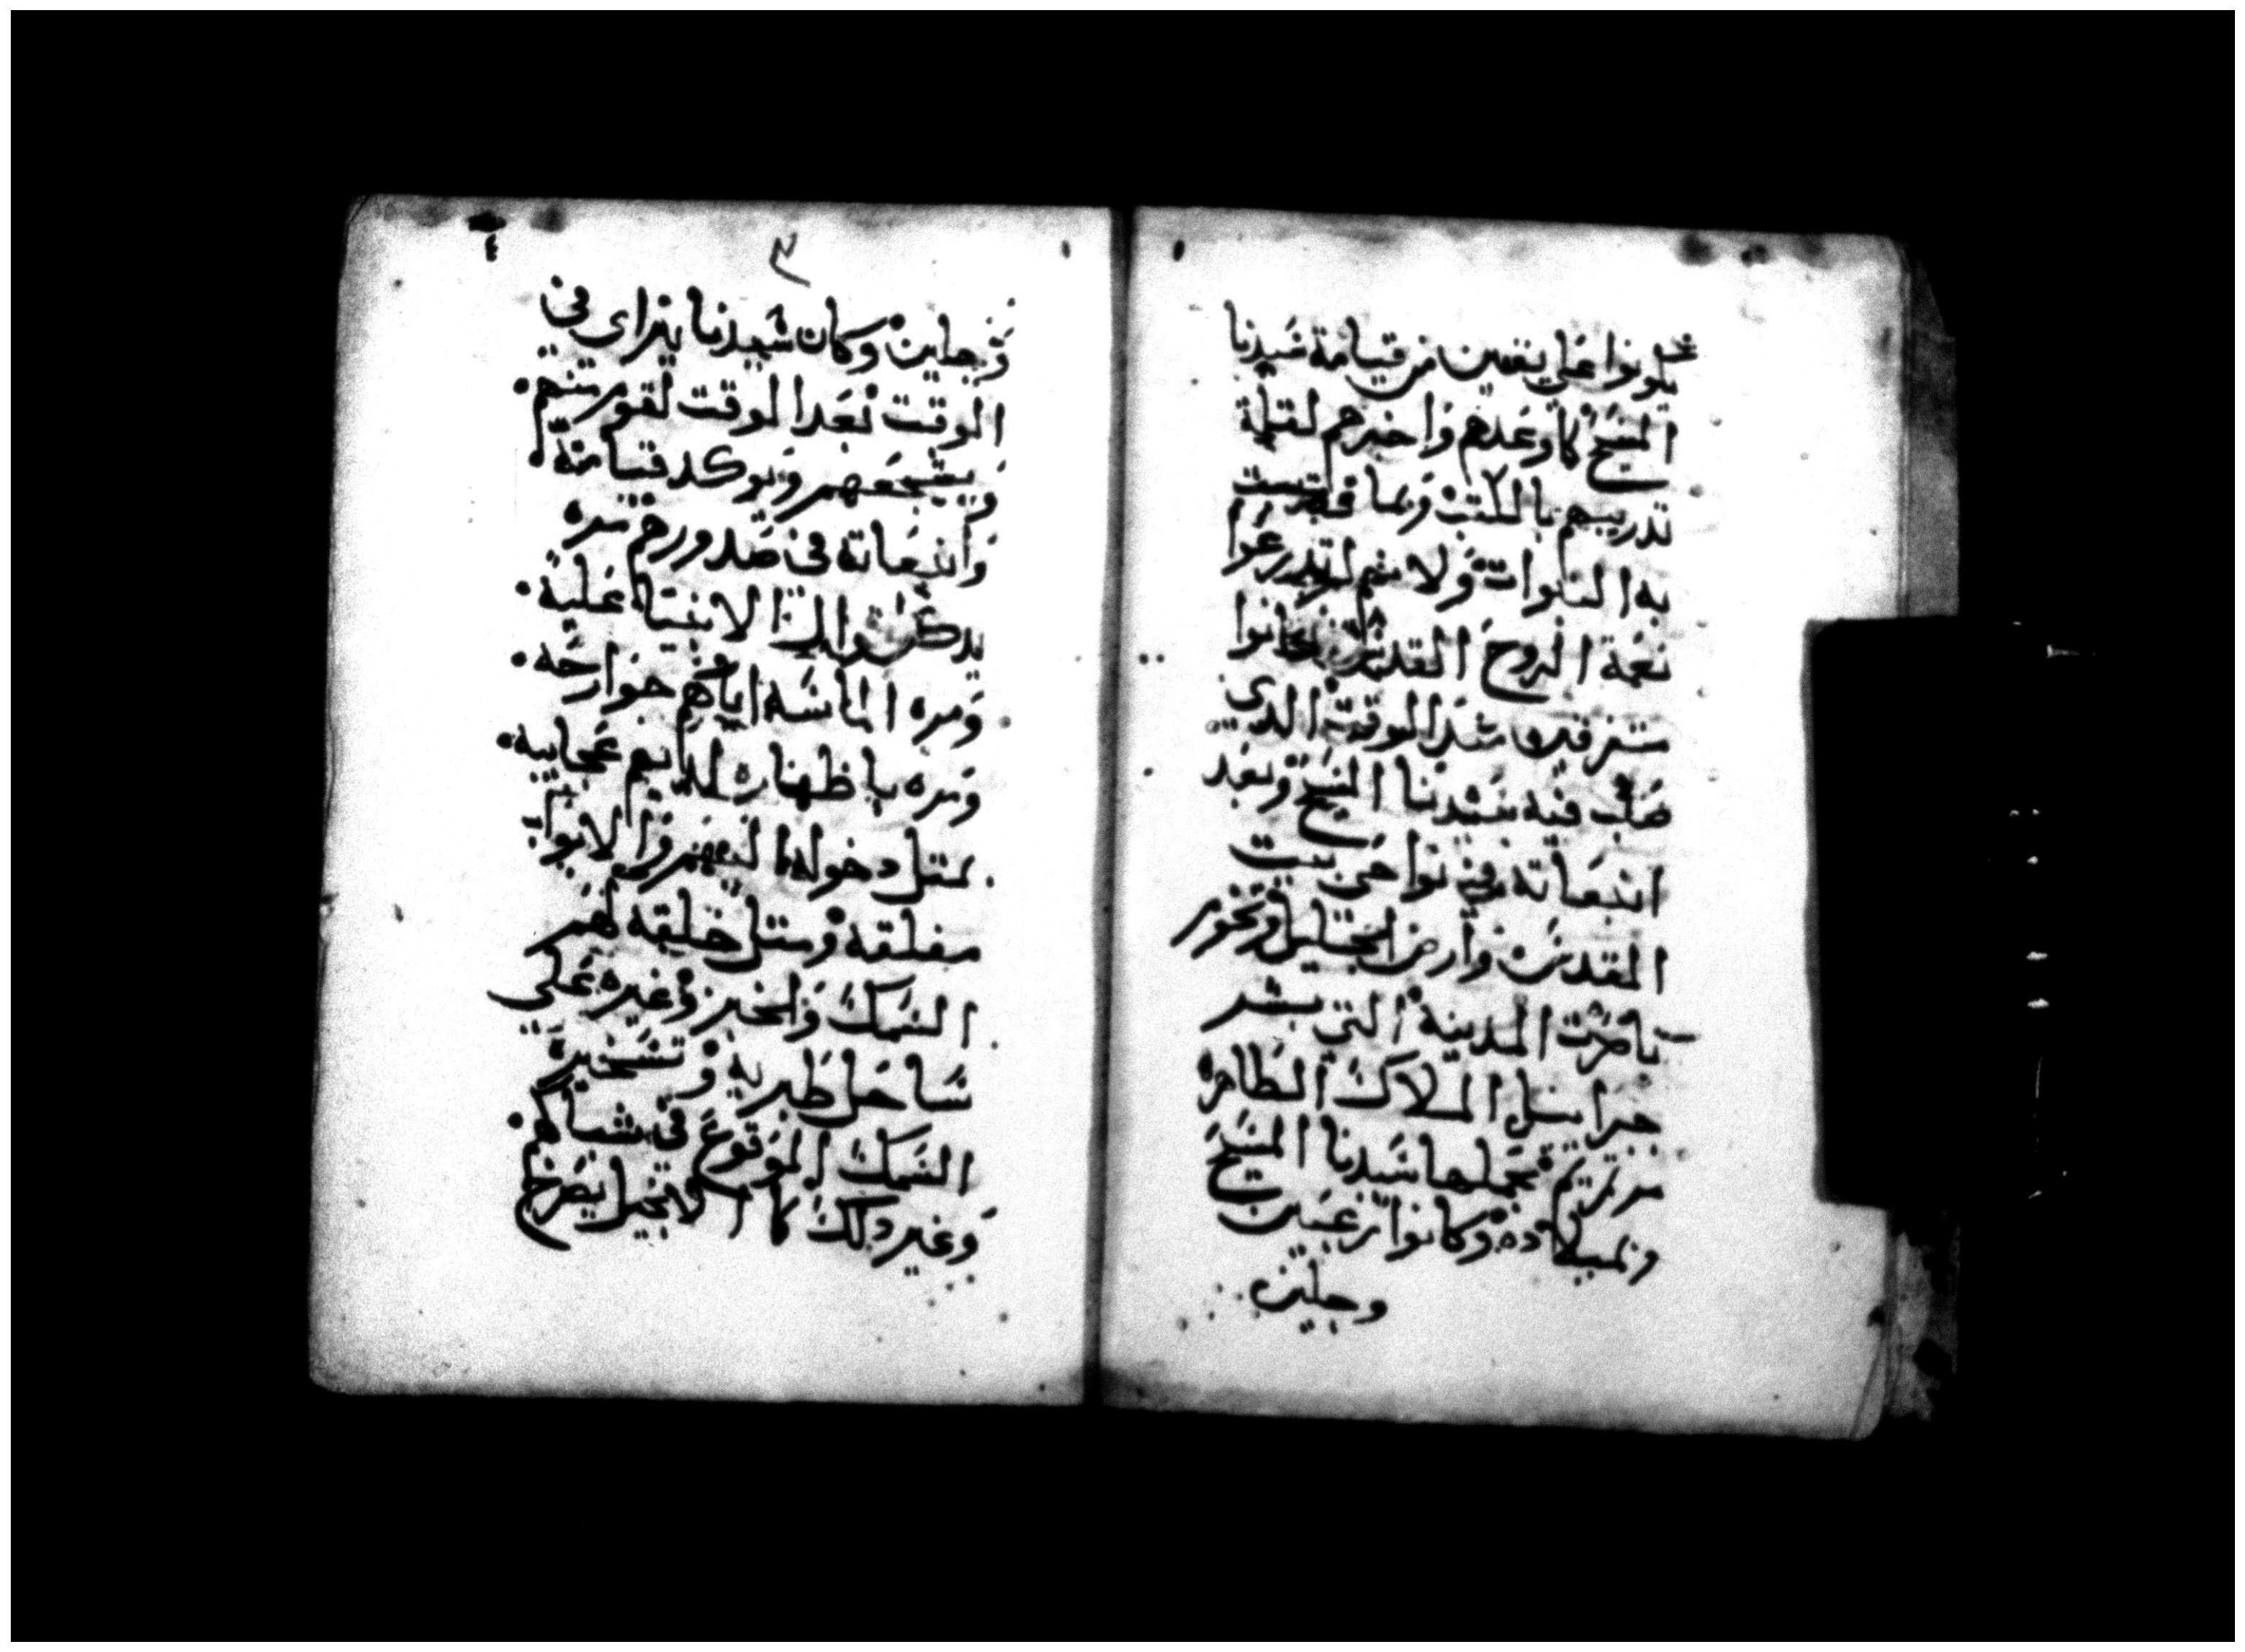 يكونوا على يقين من قيامة سيدنا
المسيح كما وعدهم واخبرهم لقلة
تدريبهم بالكتب وبما
به النبوات ولانهم لم تدرعوا
نعمة الروح القدس فكانوا
متفرقين منذ الوقت الذي
صلب فيه سيدنا المسيح وبعد
انبعاثه في نواحي بيت
المقدس وارض الجليل وتخوم
ناصرت المدينة التي بشر
جبراييل الملاك الطاهره
مرتمريم بحملها سيدنا المسيح
وبميلاده وكانوا مرعبين
وجلين
٣
٤
وجلين وكان سيدنا يتراي في
الوقت بعد الوقت لقوم منهم
ويشجعهم ويوكد قيامته
وانبعاثه في صدورهم مره
بذكر الانبيا عليه
ومره الماسه اياهم جوارحه
ومره باظهاره لديهم عجايبه
متل دخوله اليهم والابواب
مغلقه ومتل خليقه لهم
السمك والخبز وغيره علي
ساحل طبريه وتسخيره
السمك الوقوع في شباكهم
وغير ذلك كما الانجيل يصرخ